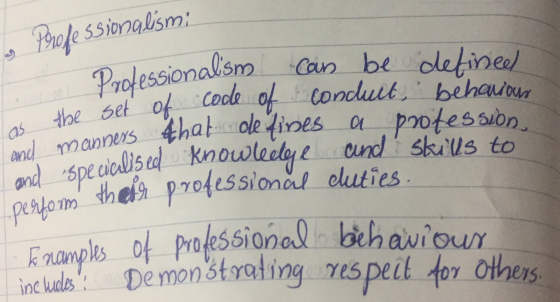 → Professionalism:
Professionalism can be defined
as the set of code of conduct, behaviour
and manners that defines a profession,
and specialised knowledge and skills to
perform their professional duties.
Examples of professional behaviour
includes: Demonstrating respect for others.